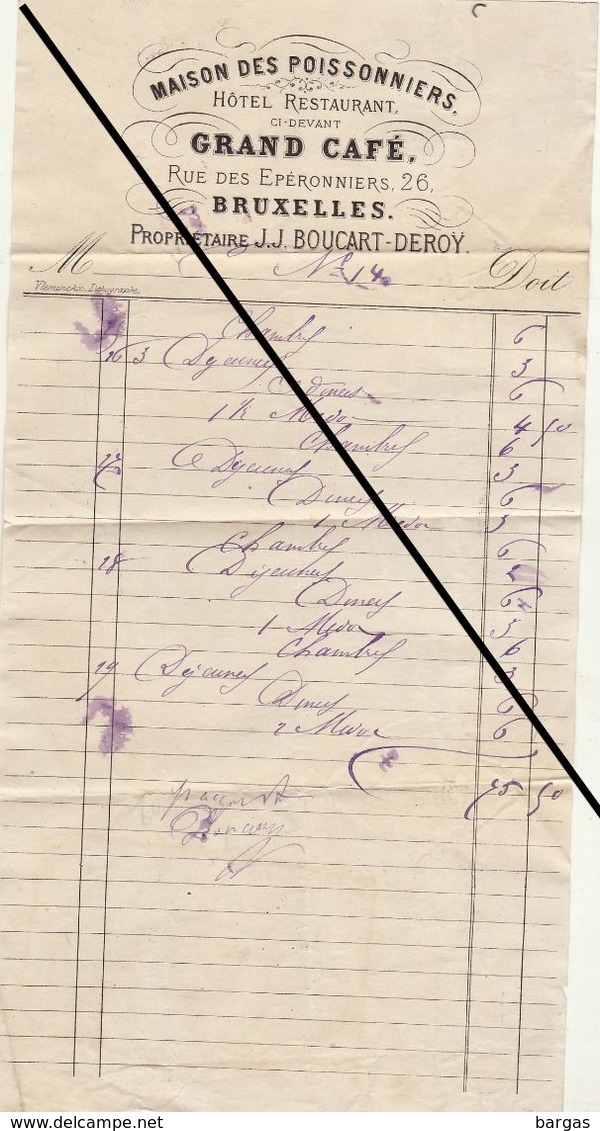 MAISON DES POISSONNIERS,
HÔTEL RESTAURANT,
CI-DEVANT
GRAND CAFÉ,
RUE DES EPÉRONNIERS, 26,
BRUXELLES.
PROPRIÉTAIRE J.J. BOUCART-DEROY.
M No 14 Doit
Vleminckx Lithographe.
Chambres 6
26 3 Dejeuners 3
Diners 6
Medoc 4 50
Chambres 6
27 Dejeuners 3
Diners 6
1 Medoc 3
Chambres 6
28 Dejeuners
Diners 6
1 Medoc 3
Chambres 6
29 Dejeuners 3
Diners 6
2 Medoc 6
75 50
www.delcampe.net
bargas